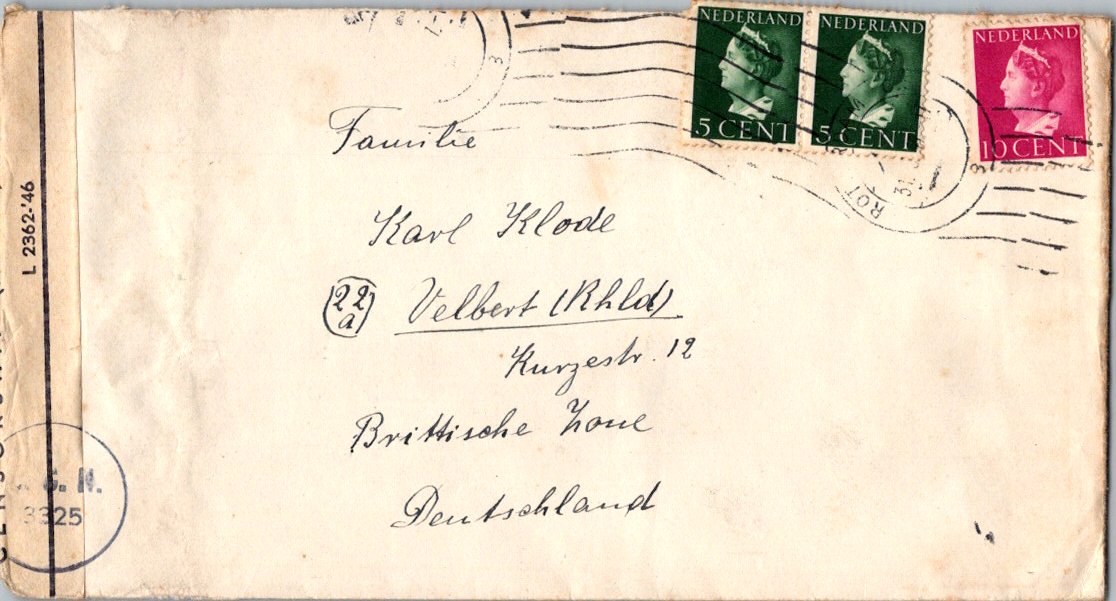 NEDERLAND
5 CENT
NEDERLAND
5 CENT
NEDERLAND
10 CENT
3
ROT
3
Familie
Karl Klode
22
a
Velbert (Rhld)
Kurzestr. 12
Brittische Zone
Deutschland
L 2362-'46
N.
3325